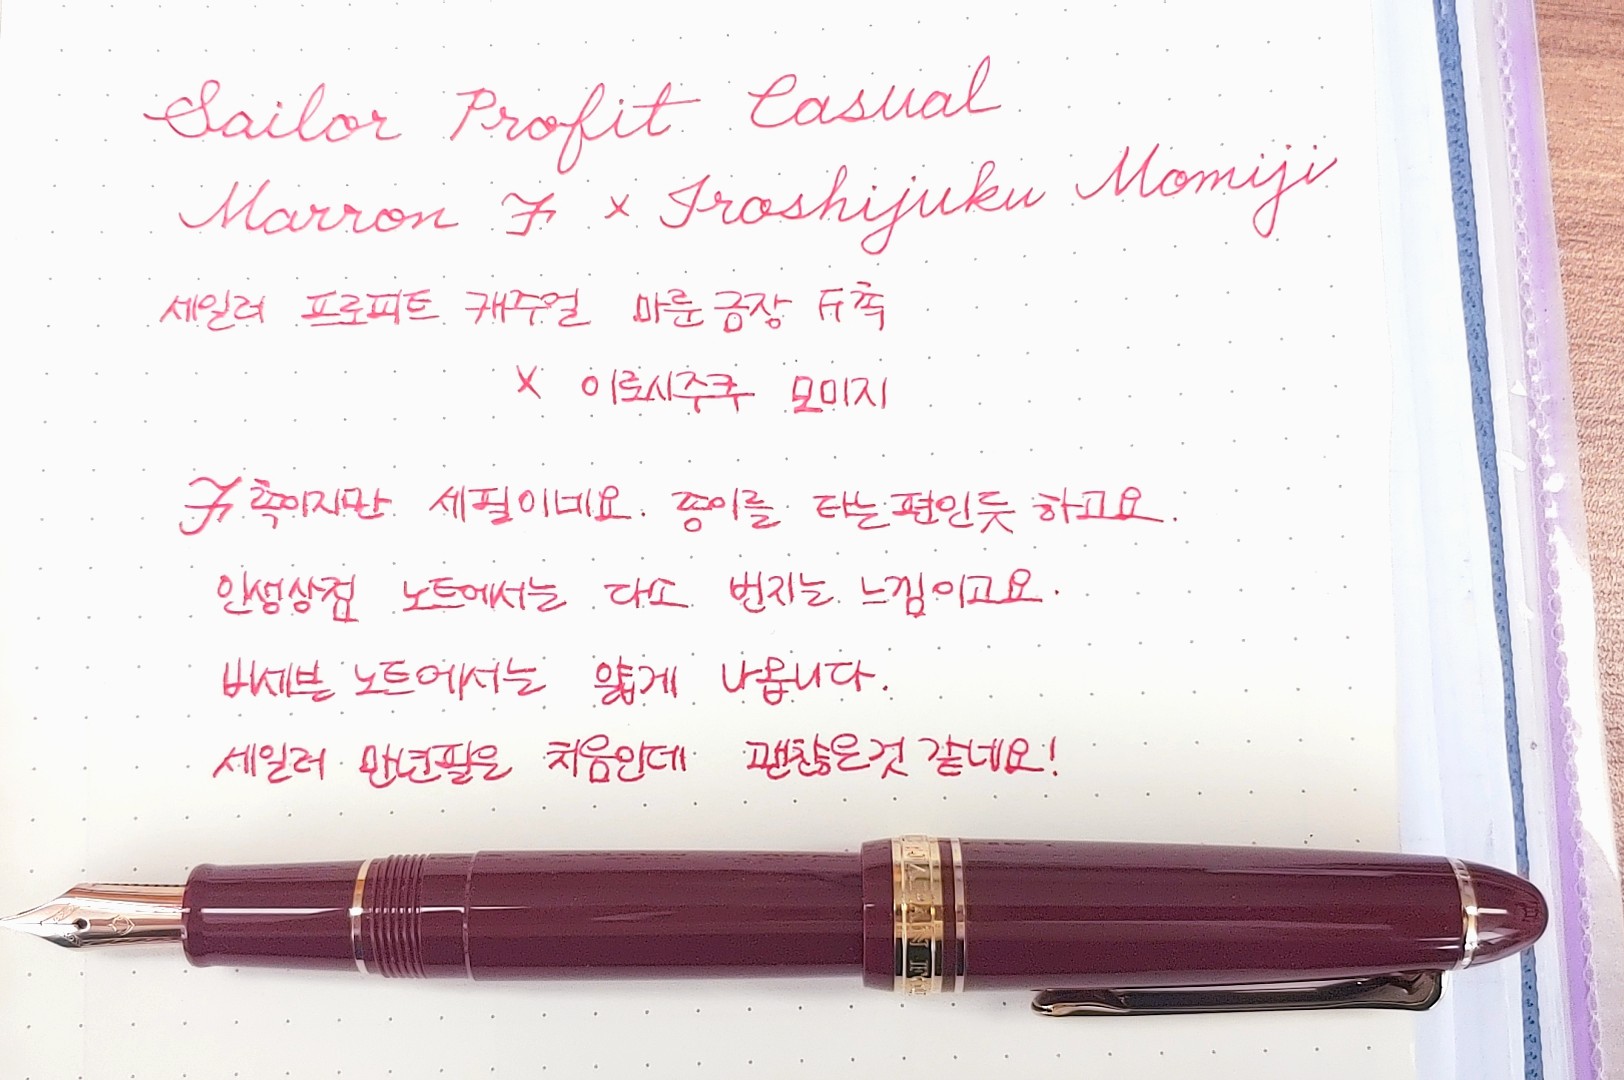 Sailor Profit Casual
Marron F x Iroshijuku Momiji
세일러 프로피트 캐주얼 마룬금장 F촉
x 이로시주쿠 모미지
F촉이지만 세필이네요. 종이를 타는편인듯 하고요.
인생상점 노트에서는 다소 번지는 느낌이고요.
바세븐 노트에서는 얇게 나옵니다.
세일러 만년필은 처음인데 괜찮은것 같네요!